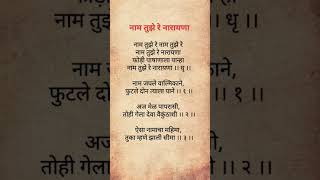 नाम तुझे रे नारायणा
नाम तुझे रे नाम तुझे रे
नाम तुझे रे नारायणा
फोडी पाषाणाला पान्हा
नाम तुझे रे नारायणा ।। धृ ।।
नाम जपले वाल्मिकाने,
फुटले दोन त्याला पाने ।। १ ।।
अज मेळ पापरासी,
तोही गेला देवा वैकुंठाची ।। २ ।।
ऐसा नामाचा महिमा,
तुका म्हणे झाली सीमा ।। ३ ।।